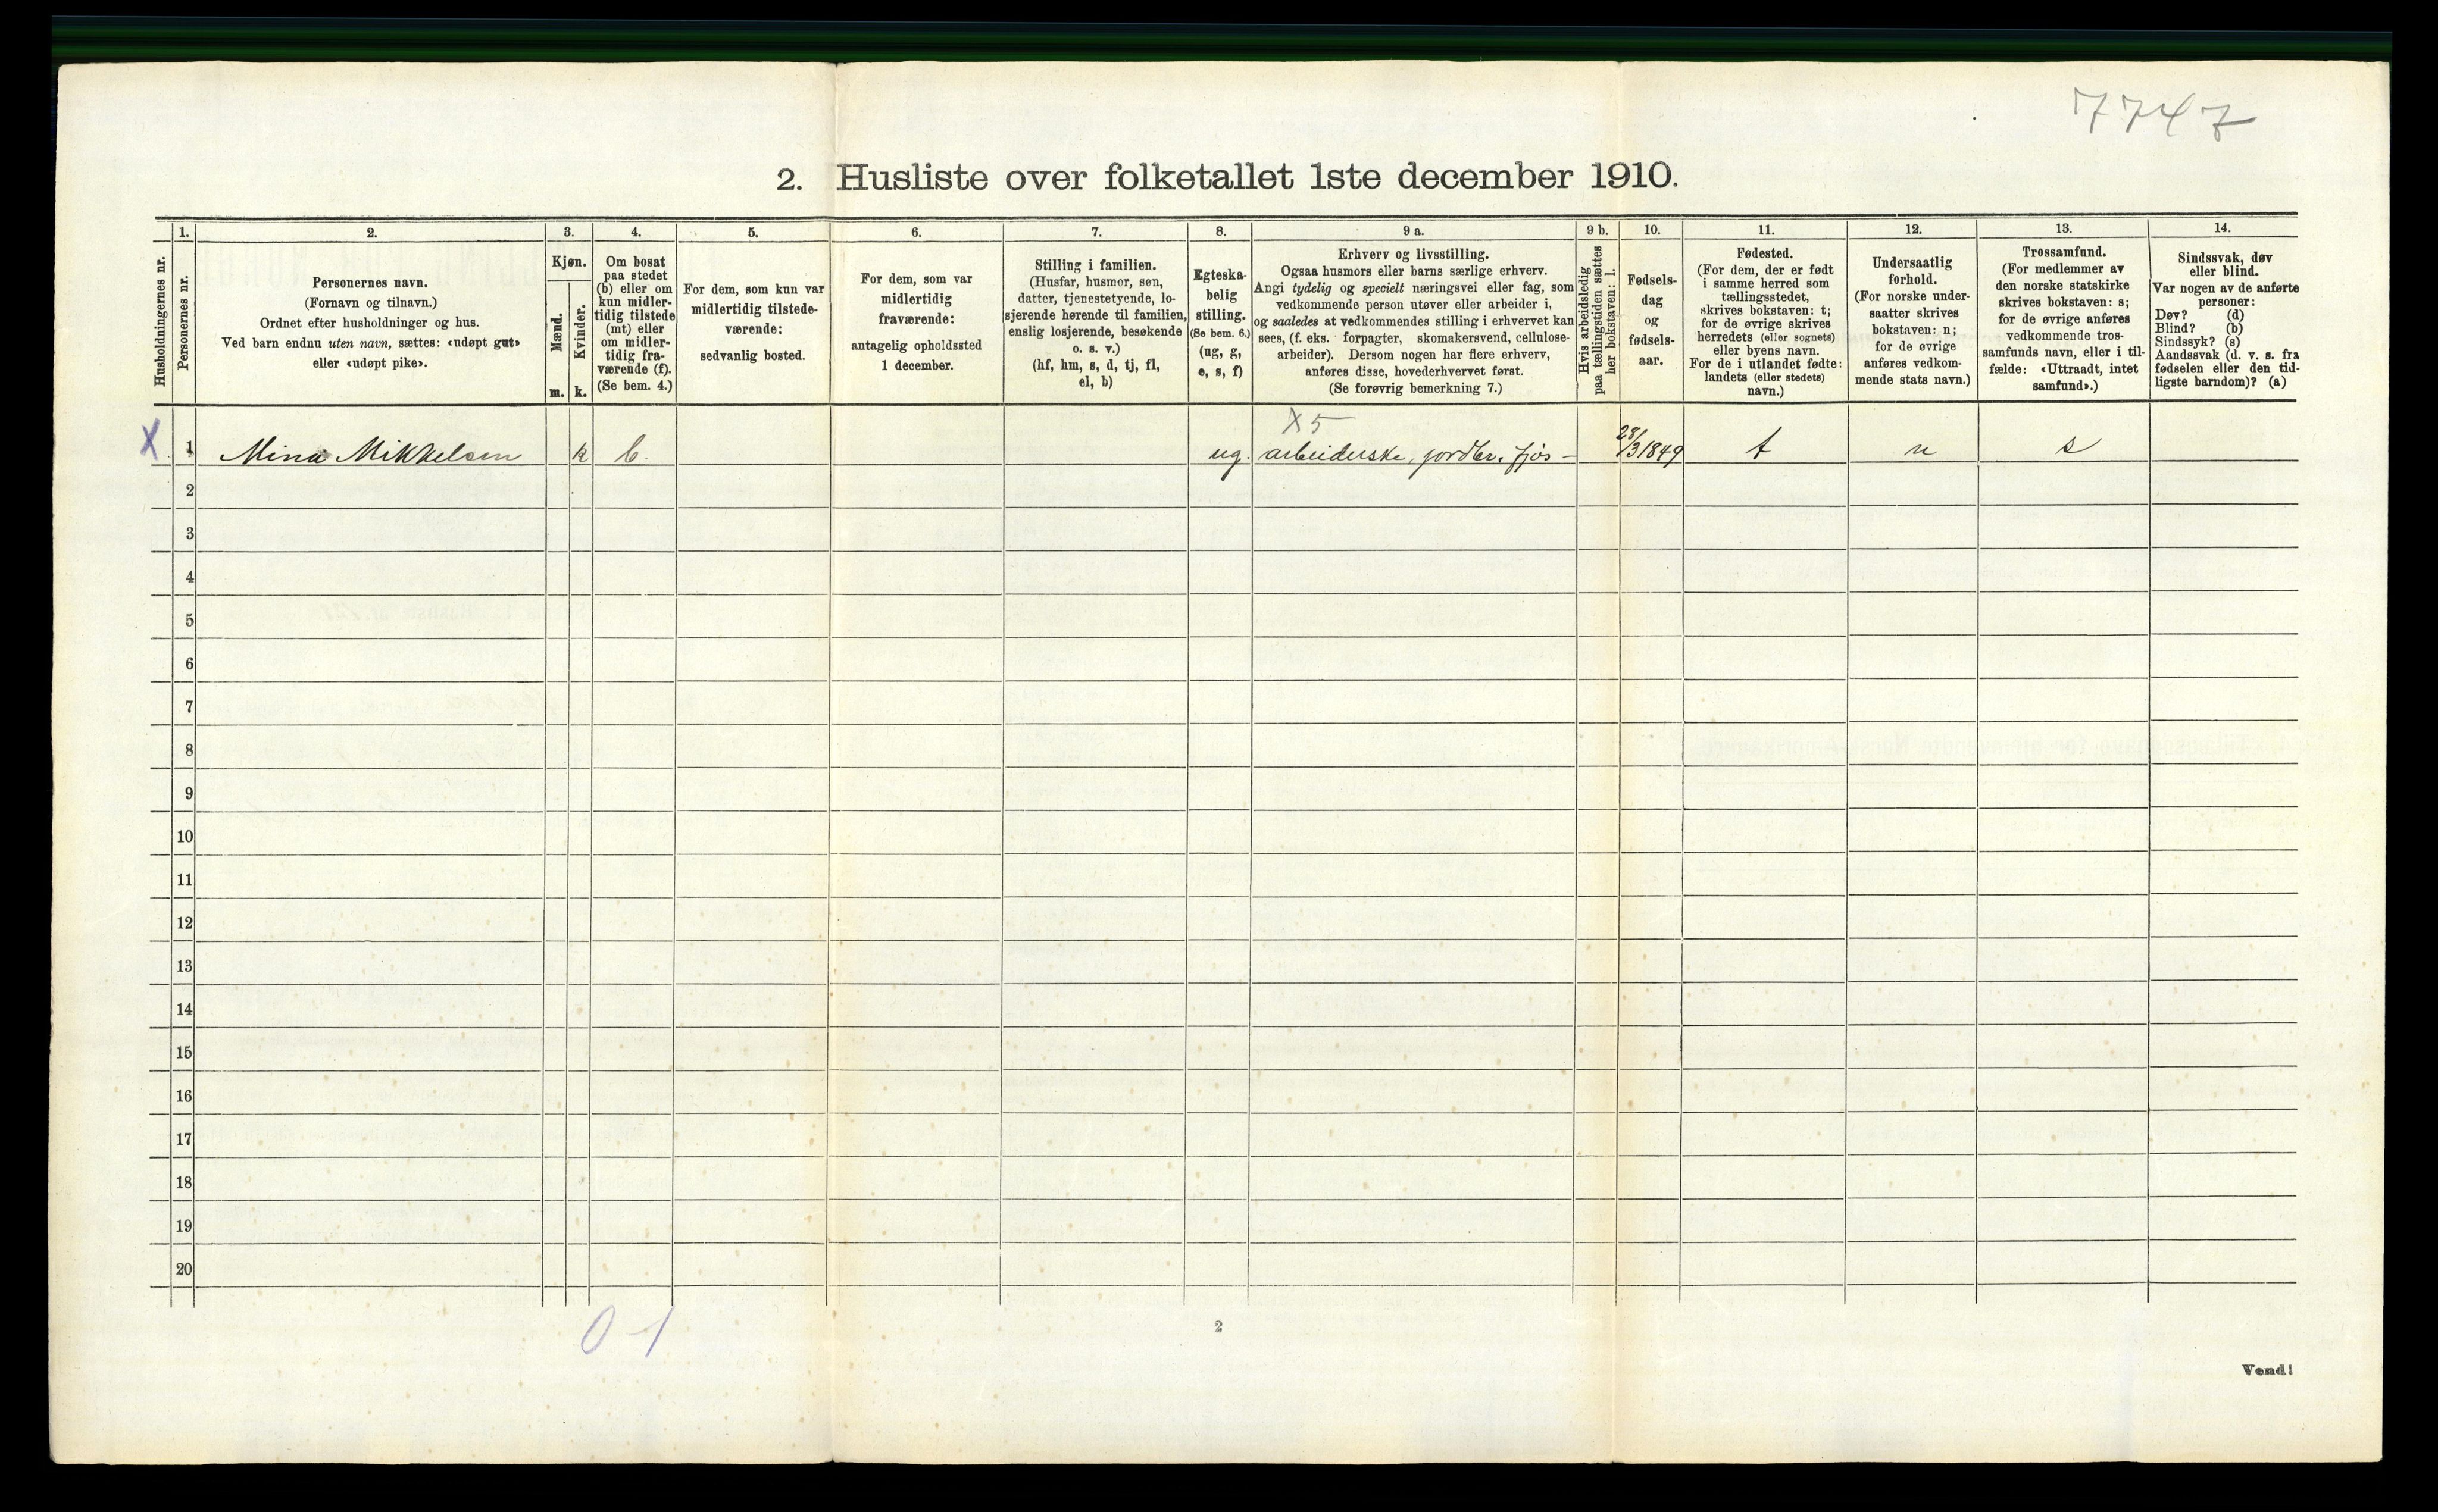 7747
2. Husliste over folketallet 1ste december 1910.
Husholdningernes nr.
1.
Personernes nr.
2.
Personernes navn.
(Fornavn og tilnavn.)
Ordnet efter husholdninger og hus.
Ved barn endnu uten navn, sættes: «udøpt gut»
eller «udøpt pike».
3.
Kjøn.
Mænd.
Kvinder.
m. k.
4.
Om bosat
paa stedet
(b) eller om
kun midler-
tidig tilstede
(mt) eller
om midler-
tidig fra-
værende (f).
(Se bem. 4.)
5.
For dem, som kun var
midlertidig tilstede-
værende:
sedvanlig bosted.
6.
For dem, som var
midlertidig
fraværende:
antagelig opholdssted
1 december.
7.
Stilling i familien.
(Husfar, husmor, søn,
datter, tjenestetyende, lo-
sjerende hørende til familien,
enslig losjerende, besøkende
o. s. v.)
(hf, hm, s, d, tj, fl,
el, b)
8.
Egteska-
belig
stilling.
(Se bem. 6.)
(ug, g,
e, s, f)
9 a.
Erhverv og livsstilling.
Ogsaa husmors eller barns særlige erhverv.
Angi tydelig og specielt næringsvei eller fag, som
vedkommende person utøver eller arbeider i,
og saaledes at vedkommendes stilling i erhvervet kan
sees, (f. eks. forpagter, skomakersvend, cellulose-
arbeider). Dersom nogen har flere erhverv,
anføres disse, hovederhvervet først.
(Se forøvrig bemerkning 7.)
9 b.
Hvis arbeidsledig
paa tællingstiden sættes
her bokstaven: l.
10.
Fødsels-
dag
og
fødsels-
aar.
11.
Fødested.
(For dem, der er født
i samme herred som
tællingsstedet,
skrives bokstaven: t;
for de øvrige skrives
herredets (eller sognets)
eller byens navn.
For de i utlandet fødte:
landets (eller stedets)
navn.)
12.
Undersaatlig
forhold.
(For norske under-
saatter skrives
bokstaven: n;
for de øvrige
anføres vedkom-
mende stats navn.)
13.
Trossamfund.
(For medlemmer av
den norske statskirke
skrives bokstaven: s;
for de øvrige anføres
vedkommende tros-
samfunds navn, eller i til-
fælde: «Uttraadt, intet
samfund».)
14.
Sindssvak, døv
eller blind.
Var nogen av de anførte
personer:
Døv? (d)
Blind? (b)
Sindssyk? (s)
Aandssvak (d. v. s. fra
fødselen eller den tid-
ligste barndom)? (a)
X5
X 1 Mina Mikkelsen k b. ug. arbeiderske, jordbr. fjøs - 28/3 1849 t n s
2
3
4
5
6
7
8
9
10
11
12
13
14
15
16
17
18
19
20
0-1
2
Vend!